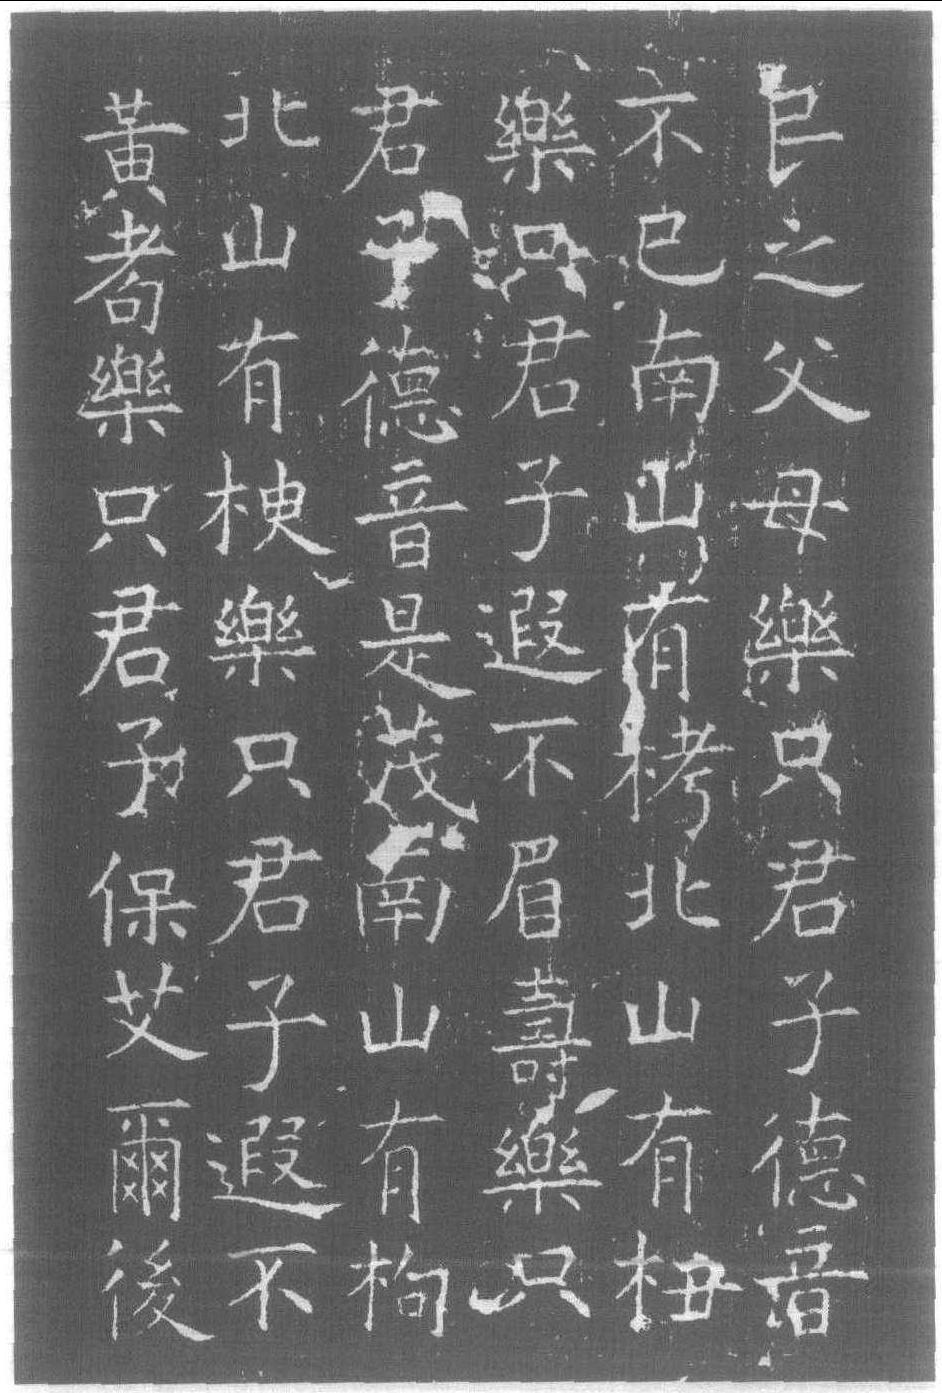 民之父母樂只君子德音
不已南山有栲北山有杻
樂只君子遐不眉壽樂只
君子德音是茂南山有枸
北山有楰樂只君子遐不
黃耇樂只君子保艾爾後